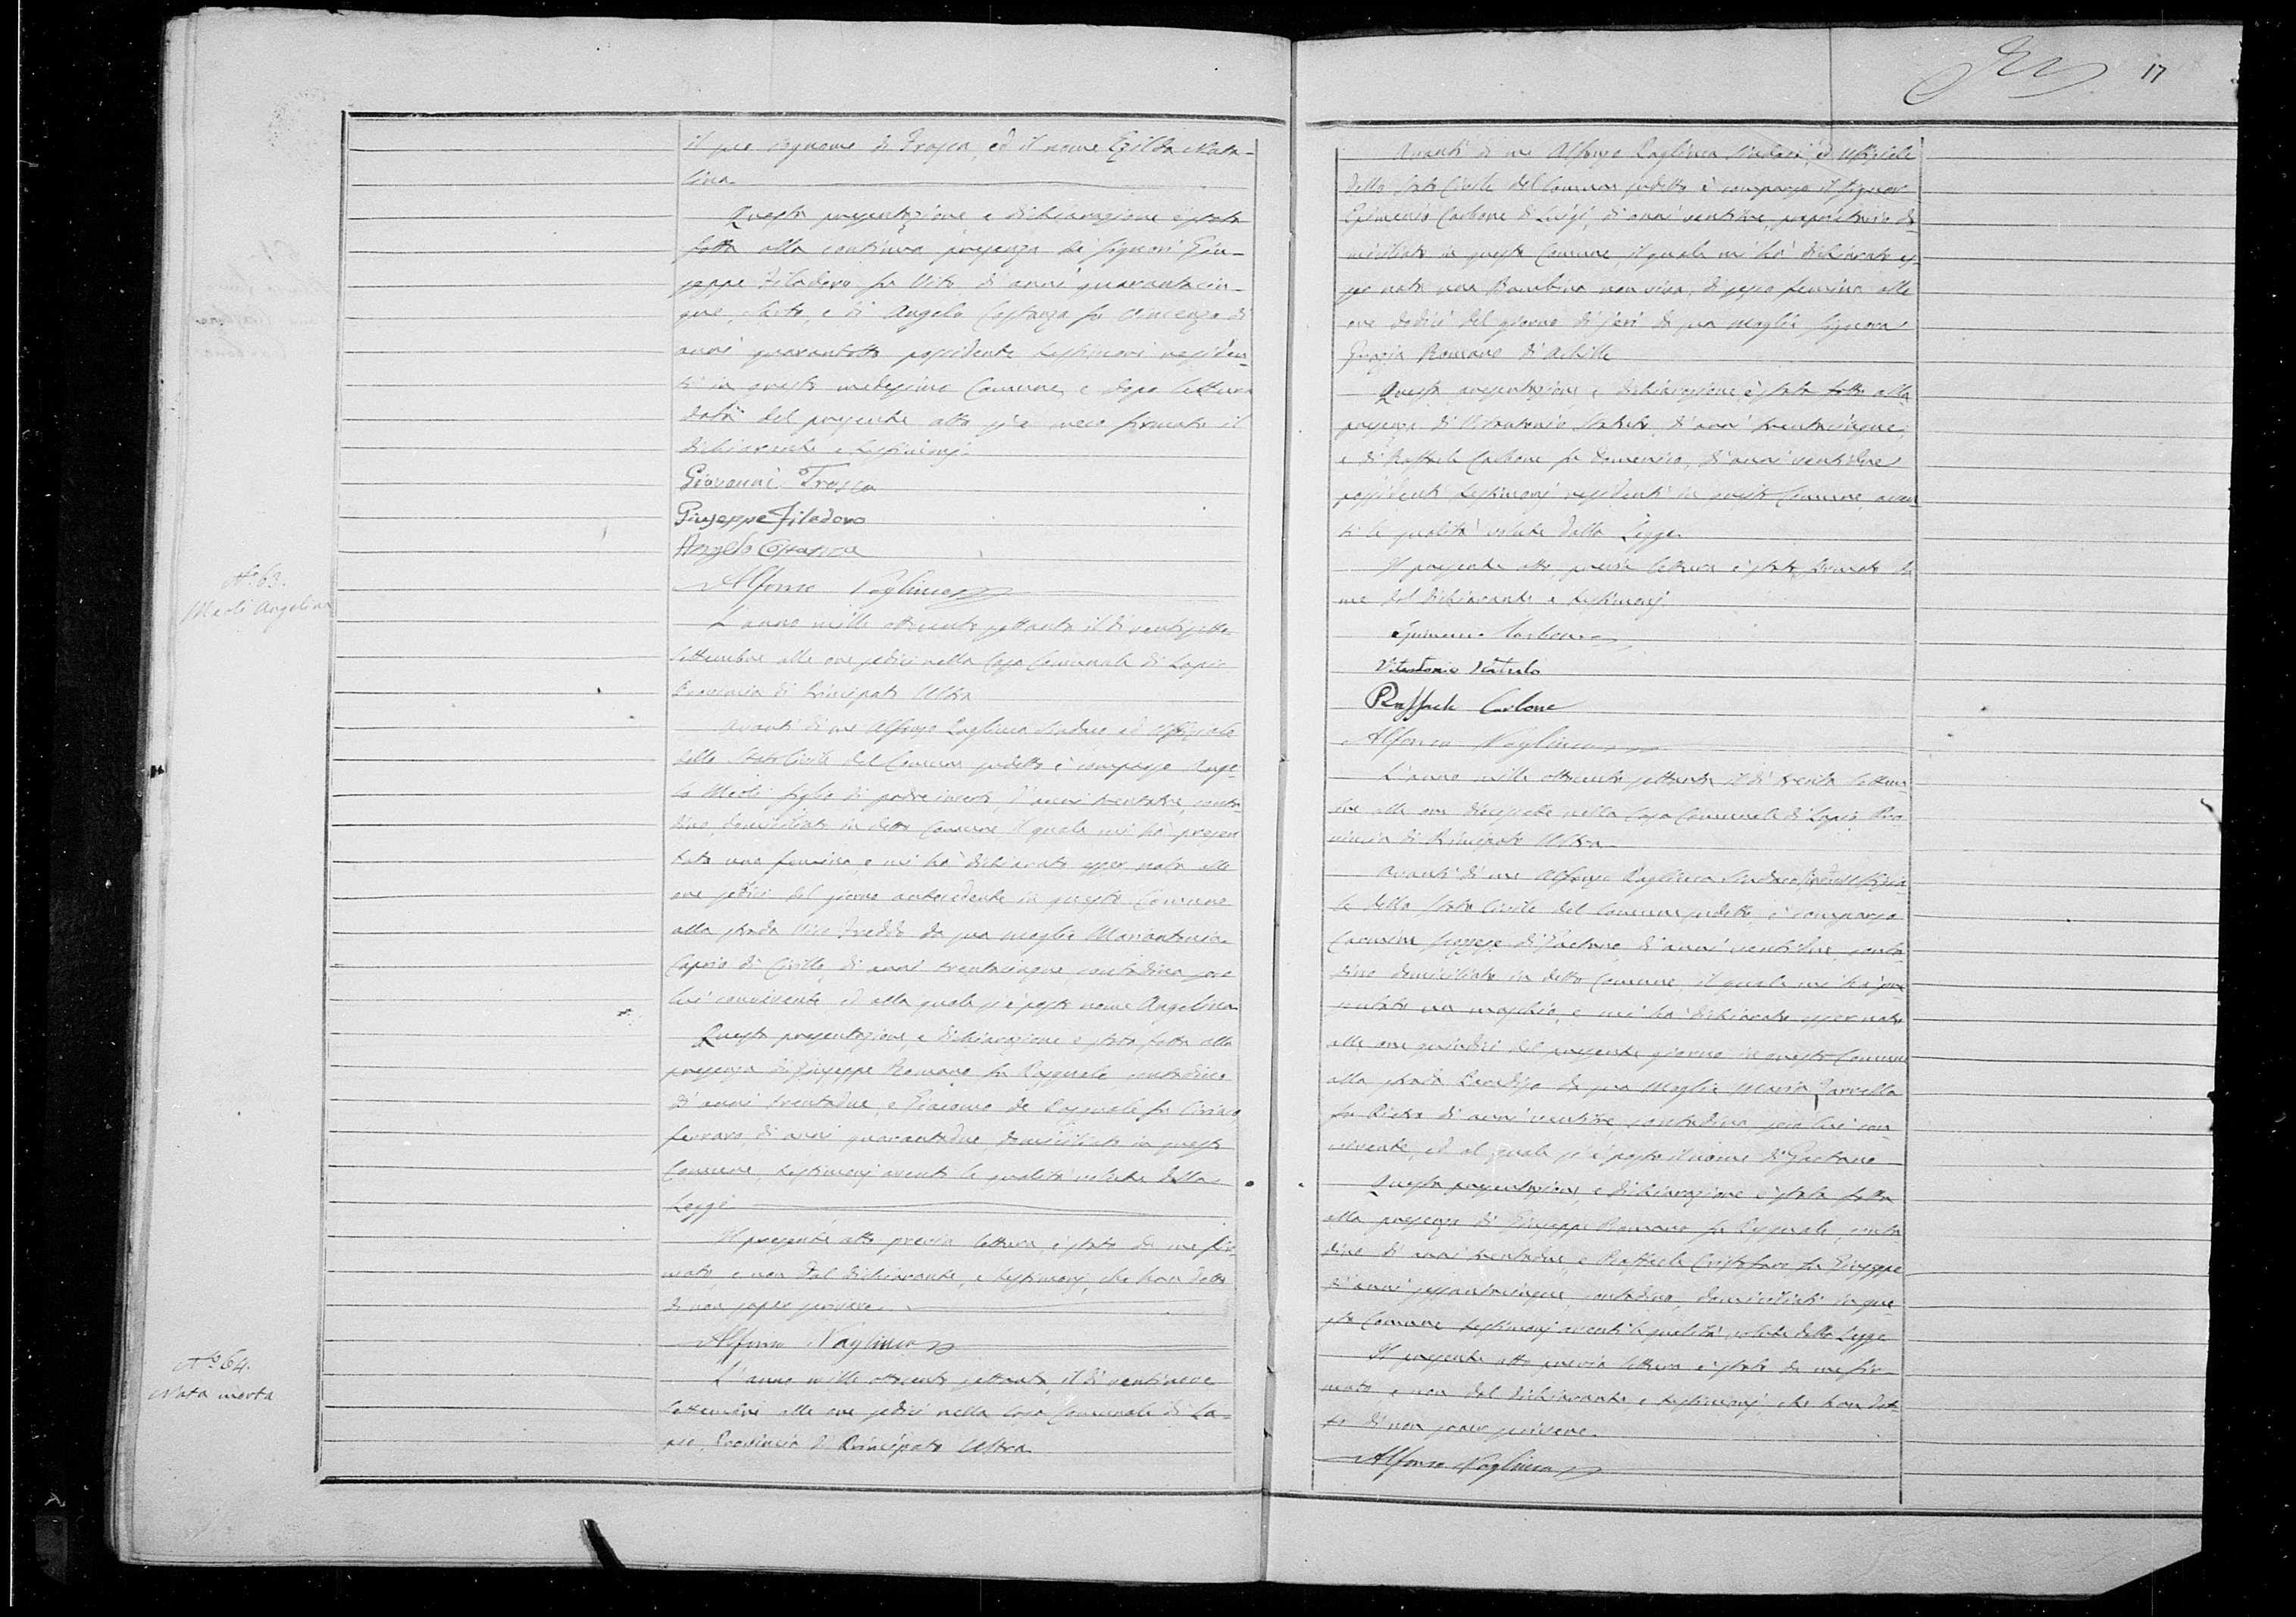 il suo cognome di Frasca, ed il nome Ezilda Nata-
lina.
Questa presentazione, e dichiarazione è stata
fatta alla continua presenza dei Signori Giu-
seppe Filadoro fu Vito di anni quarantacin-
que, e di Angelo Costanza fu Vincenzo di
anni quarantotto possidente testimoni residen-
ti in questo medesimo Comune, e dopo lettura
data del presente atto si è meco firmato il
dichiarante e testimonj.
Giovanni Frasca
Giuseppe Filadoro
Angelo Costanza
Alfonso Vaglineo
N.° 63.
Meoli Angelina
L'anno mille ottocento settanta il dì ventisette
Settembre alle ore sedici nella Casa Comunale di Lapio
Provincia di Principato Ultra
Avanti di me Alfonso Vaglineo Sindaco ed Uffiziale
dello Stato Civile del Comune sudetto è comparso Ange-
lo Meoli figlio di padre incerti, d'anni trentatre, conta-
dino, domiciliato in detto Comune il quale mi ha presen-
tato una femina, e mi ha dichiarato esser nata alle
ore sedici del giorno antecedente in questo Comune
alla strada Vico Freddo da sua moglie Mariantonia
Caprio di Cirillo, di anni trentacinque, contadina seco
lui convivente, ed alla quale si è posto nome Angelina
Questa presentazione, e dichiarazione è stata fatta alla
presenza di Giuseppe Romano fu Pasquale contadino
di anni trentadue, e Giacomo de Pasquale fu Ciriaco,
ferraro di anni quarantadue, domiciliato in questo
Comune, testimonj aventi le qualità volute dalla
Legge.
Il presente atto previa lettura, è stato da me fir-
mato, e non dal dichiarante, e testimonj, che han detto
di non saper scrivere.
Alfonso Vaglineo
N.° 64.
Nata morta
L'anno mille ottocento settanta, il dì ventinove
Settembre alle ore sedici nella Casa Comunale di La-
pio, Provincia di Principato Ultra
17
Avanti di me Alfonso Vaglineo Sindaco, ed Uffiziale
dello Stato Civile del Comune sudetto è comparso il Signor
Epimenio Carbone di Luigi, di anni ventitre, proprietario do-
miciliato in questo Comune, il quale mi ha dichiarato es-
ser nata una Bambina non viva, di sesso femino alle
ore dodici del giorno di jeri da sua moglie Signora
Grazia Romano di Achille
Questa presentazione, e dichiarazione è stata fatta alla
presenza di Vitantonio d'anni trentacinque,
e di Raffaele Carbone fu Domenico, d'anni ventidue
possidenti testimonj residenti in questo Comune, aven-
ti le qualità volute dalla Legge.
Il presente atto, previa lettura è stato firmato da
me dal dichiarante e testimonj
Epimenio Carbone
Vitantonio
Raffaele Carbone
Alfonso Vaglineo
L'anno mille ottocento settanta il dì trenta Settem-
bre alle ore diecisette nella Casa Comunale di Lapio, Pro-
vincia di Principato Ultra
Avanti di me Alfonso Vaglineo Sindaco ed Uffizia-
le dello Stato Civile del Comune sudetto è comparso
Carmine di Gaetano, d'anni ventidue, conta-
dino domiciliato in detto Comune, il quale mi ha pre-
sentato un maschio, e mi ha dichiarato esser nato
alle ore quindici del presente giorno in questo Comune
alla strada Paradiso da sua Moglie Maria Zarrella
fu Pietro di anni ventitre, contadina seco lui con-
vivente, ed al quale si è posto il nome di Gaetano
Questa presentazione, e dichiarazione è stata fatta
alla presenza di Giuseppe Romano fu Pasquale, conta-
dino di anni trentadue, e Raffaele Cristofaro fu Giuseppe
d'anni sessantacinque contadino, domiciliati in que-
sto Comune testimonj aventi le qualità volute dalla Legge
Il presente atto previa lettura è stato da me fir-
mato, e non dal dichiarante e testimonj, che han det-
to di non saper scrivere.
Alfonso Vaglineo